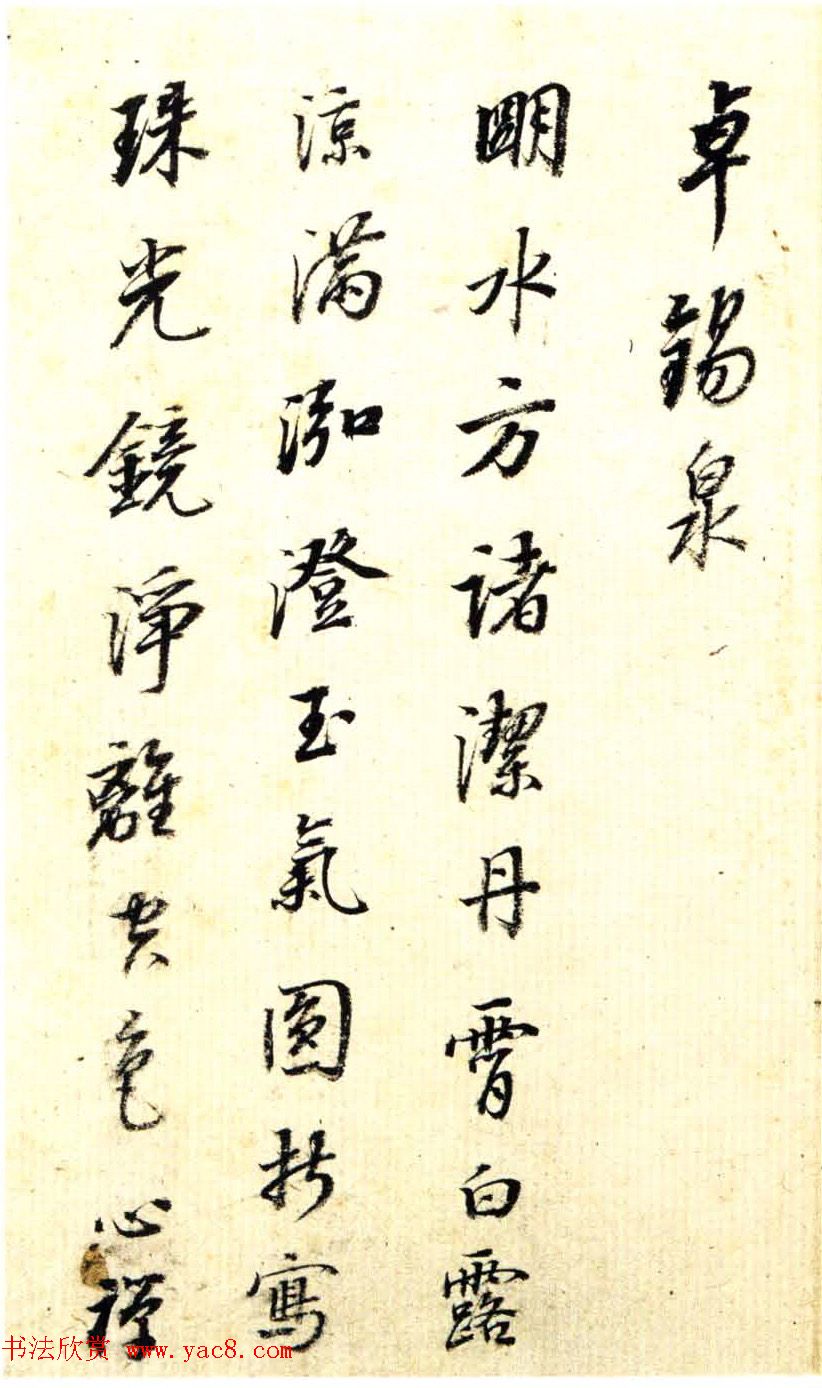 卓錫泉
明水方諸潔丹霄白露
涼滿泓澄玉氣圓折寫
珠光鏡淨離空色心禪
书法欣赏 www.yac8.com